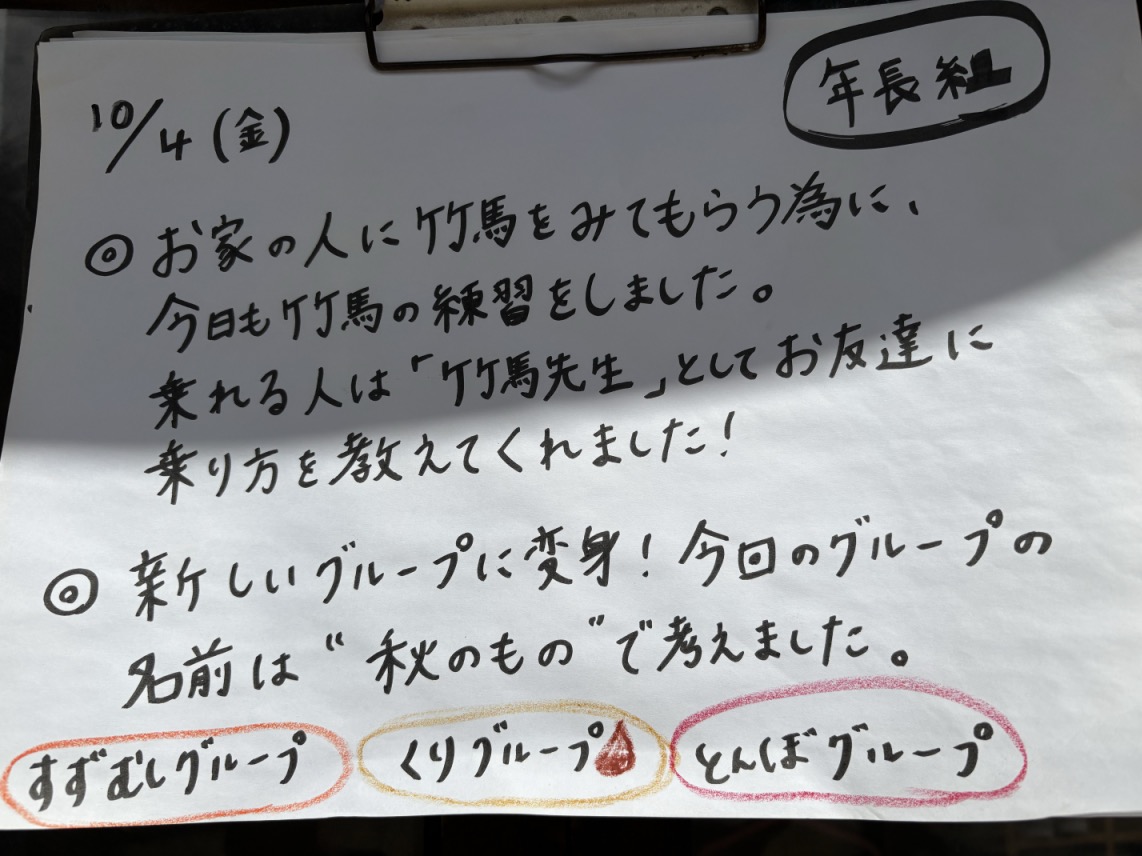 年長組
10/4(金)
◎お家の人に竹馬をみてもらう為に、
今日も竹馬の練習をしました。
乗れる人は「竹馬先生」としてお友達に
乗り方を教えてくれました!
◎新しいグループに変身!今回のグループの
名前は“秋のもの”で考えました。
すずむしグループ くりグループ とんぼグループ